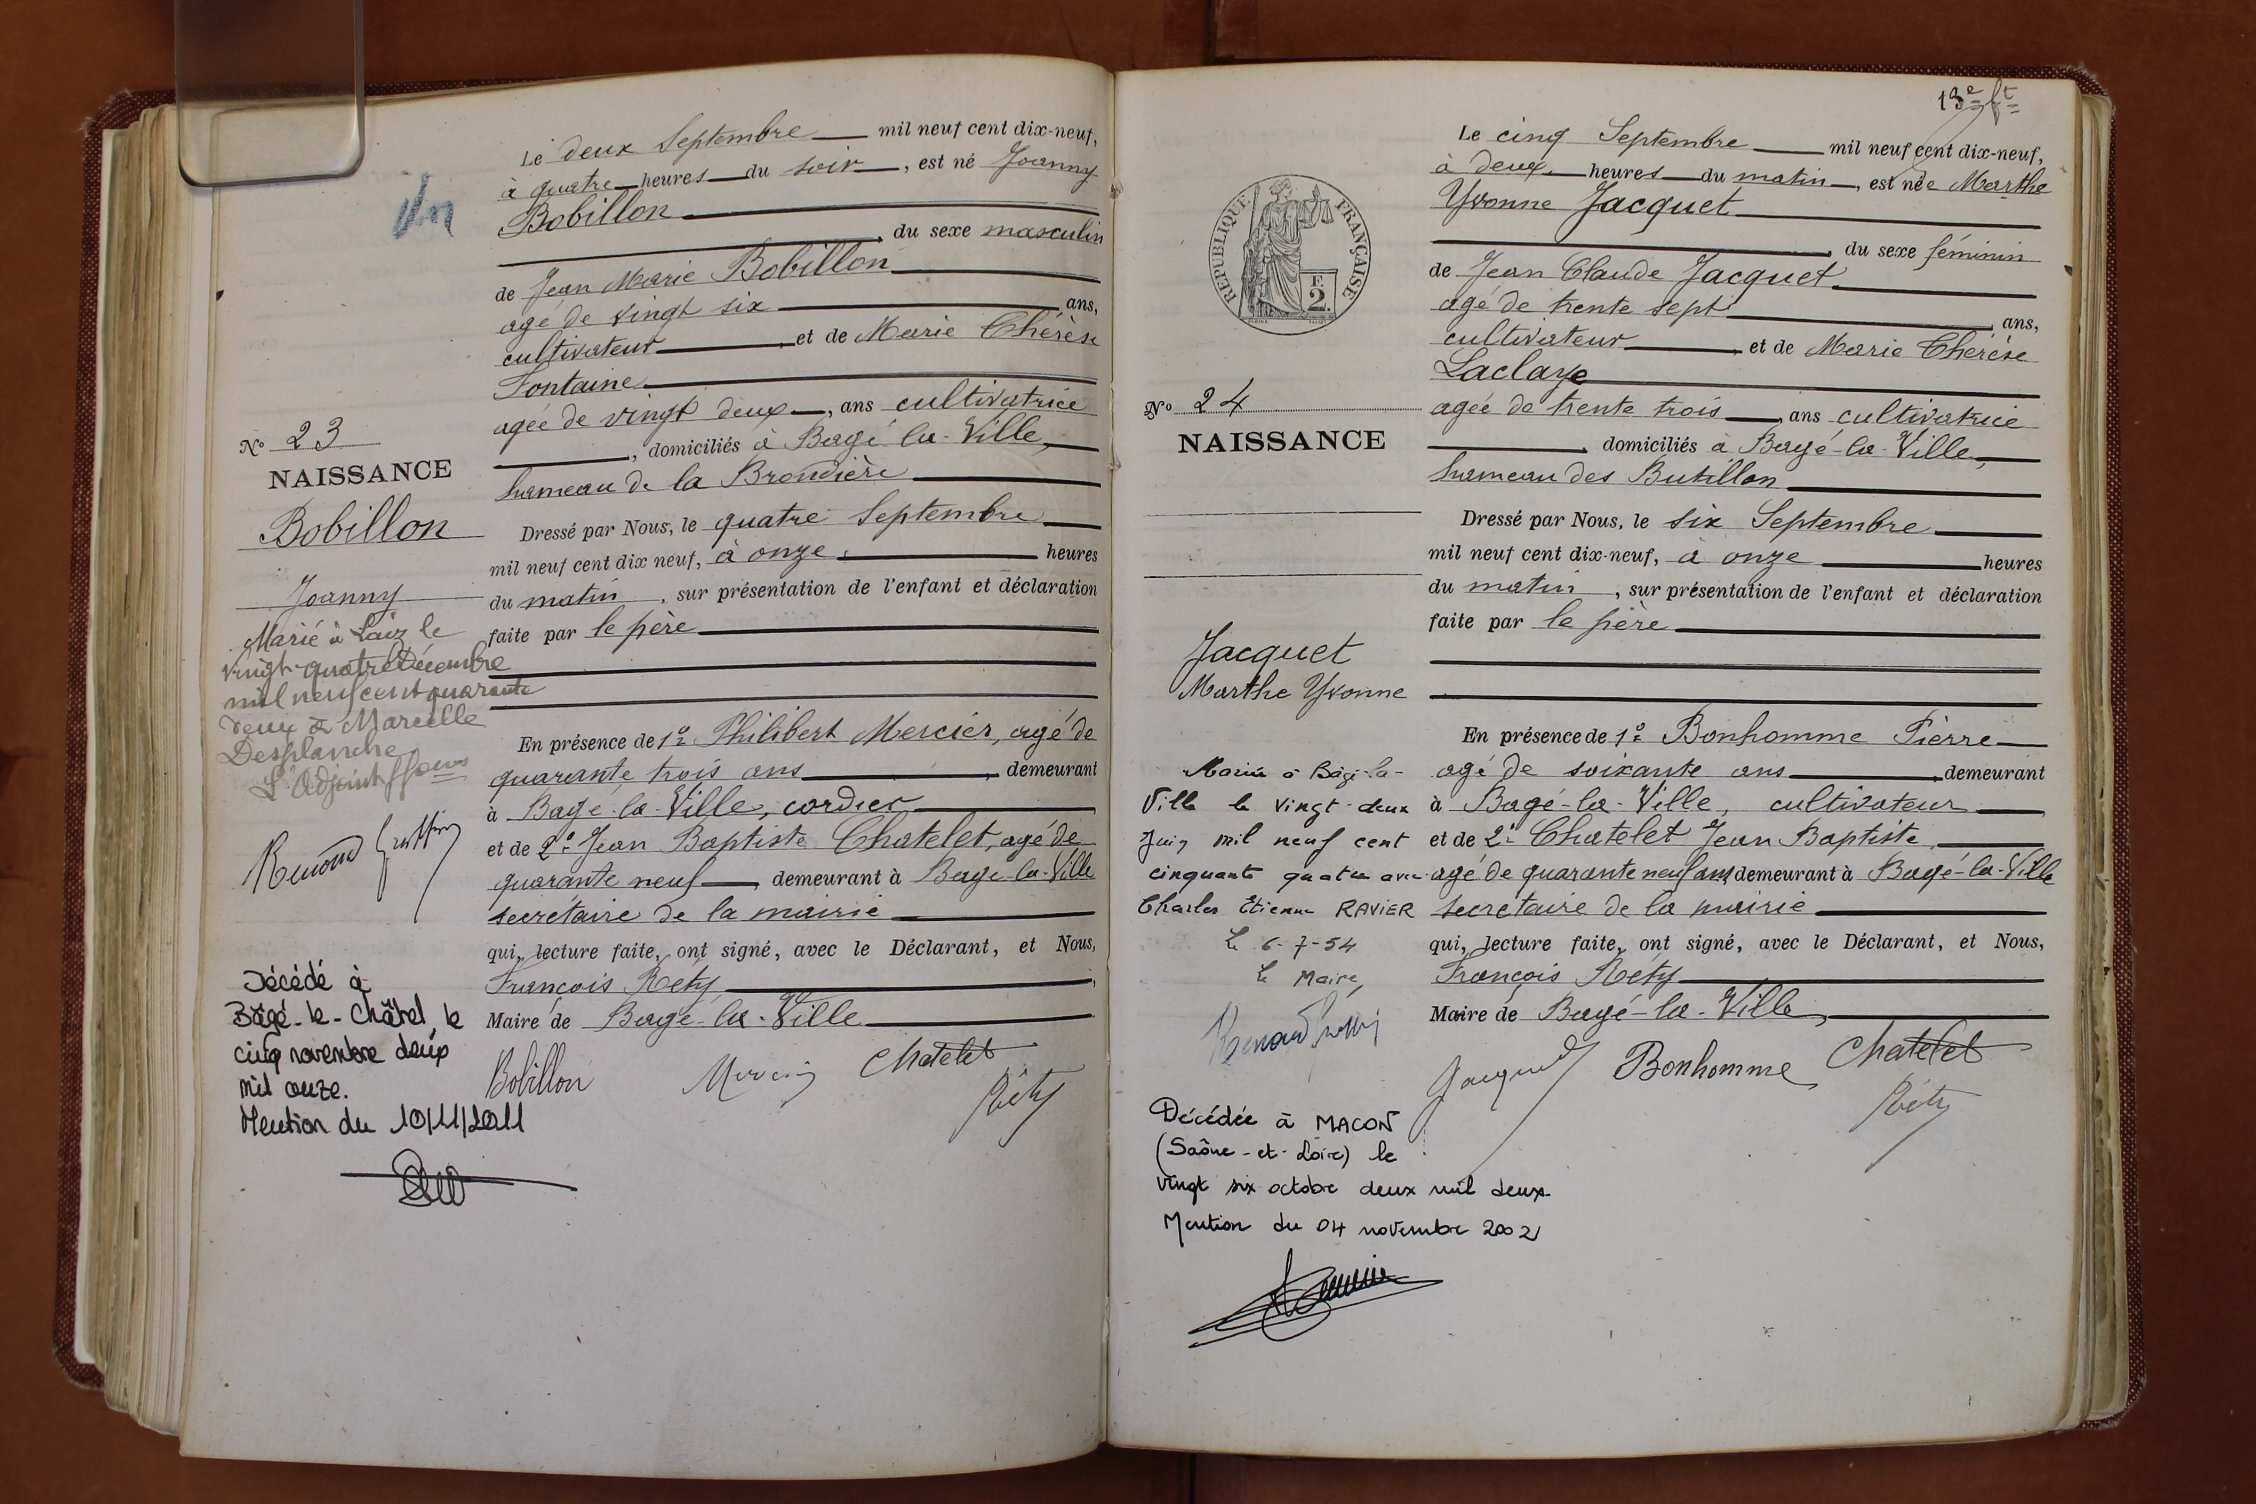 Le deux Septembre mil neuf cent dix-neuf,
à quatre heures du soir, est né Joanny
Bobillon
du sexe masculin
de Jean Marie Bobillon
agé de vingt six ans,
cultivateur, et de Marie Thérèse
Fontaine
agée de vingt deux, ans cultivatrice
, domiciliés à Bagé-la-Ville,
hameau de la Brondière
Dressé par Nous, le quatre Septembre
mil neuf cent dix neuf, à onze heures
du matin, sur présentation de l'enfant et déclaration
faite par le père
En présence de 1º Philibert Mercier, agé de
quarante trois ans, demeurant
à Bagé-la-Ville, cordier
et de 2º Jean Baptiste Chatelet, agé de
quarante neuf, demeurant à Bagé-la-Ville
secrétaire de la mairie
qui, lecture faite, ont signé, avec le Déclarant, et Nous,
François Réty,
Maire de Bagé-la-Ville
Bobillon Mercier Chatelet
Réty
Nº 23
NAISSANCE
Bobillon
Joanny
Marié à Laiz le
vingt-quatre Décembre
mil neuf cent quarante
deux à Marcelle
Desplanche
L'Adjoint
Décédé à
Bâgé-le-Châtel le
cinq novembre deux
mil onze.
Mention du 10/11/2011
13e ft
Le cinq Septembre mil neuf cent dix-neuf,
à deux heures du matin, est née Marthe
Yvonne Jacquet
, du sexe féminin
de Jean Claude Jacquet
agé de trente sept ans,
cultivateur, et de Marie Thérèse
Laclaye
agée de trente trois, ans cultivatrice
, domiciliés à Bagé-la-Ville,
hameau des Butillon
Dressé par Nous, le six Septembre
mil neuf cent dix-neuf, à onze heures
du matin, sur présentation de l'enfant et déclaration
faite par le père
En présence de 1º Bonhomme Pierre
agé de soixante ans, demeurant
à Bagé-la-Ville, cultivateur
et de 2º Chatelet Jean Baptiste,
agé de quarante neuf ans, demeurant à Bagé-la-Ville
secretaire de la mairie
qui, lecture faite, ont signé, avec le Déclarant, et Nous,
François Réty
Maire de Bagé-la-Ville,
Jacquet Bonhomme Chatelet
Réty
RÉPUBLIQUE FRANÇAISE
F.
2.
Nº 24
NAISSANCE
Jacquet
Marthe Yvonne
Mariée à Bâgé-la-
Ville le vingt-deux
Juin mil neuf cent
cinquante quatre avec
Charles Etienne RAVIER
Le 6-7-54
Le Maire,
Décédée à MACON
(Saône-et-Loire) le
vingt six octobre deux mil deux
Mention du 04 novembre 2002